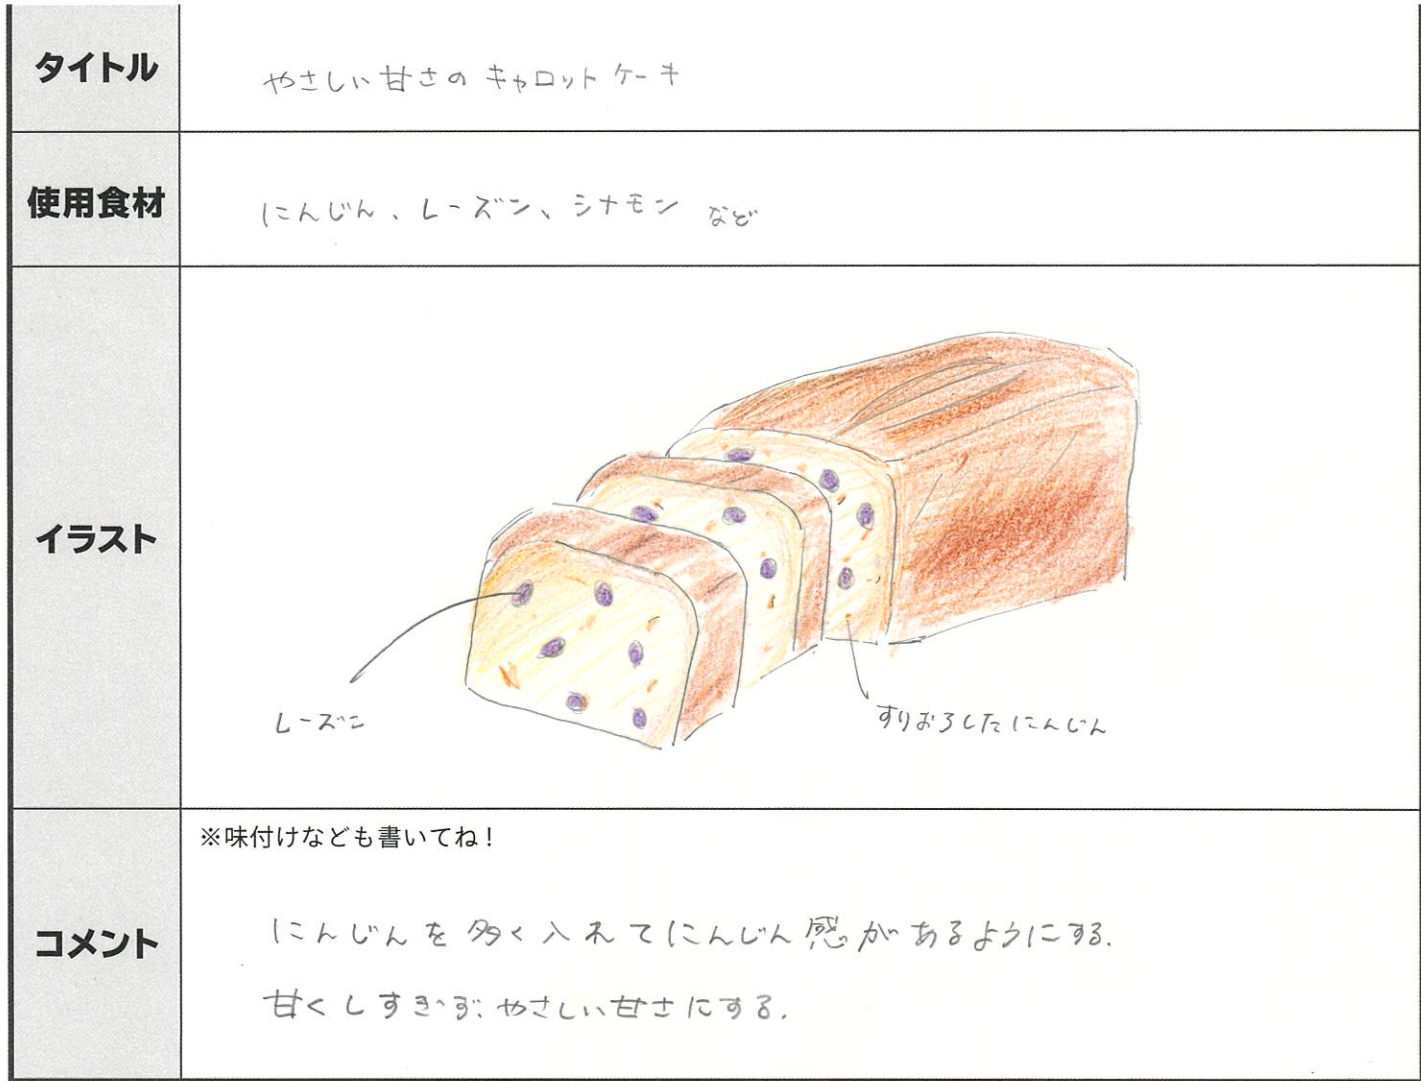 タイトル
やさしい甘さのキャロットケーキ
使用食材
にんじん、レーズン、シナモン など
イラスト
レーズン
すりおろしたにんじん
コメント
※味付けなども書いてね！
にんじんを多く入れてにんじん感があるようにする.
甘くしすぎず、やさしい甘さにする.